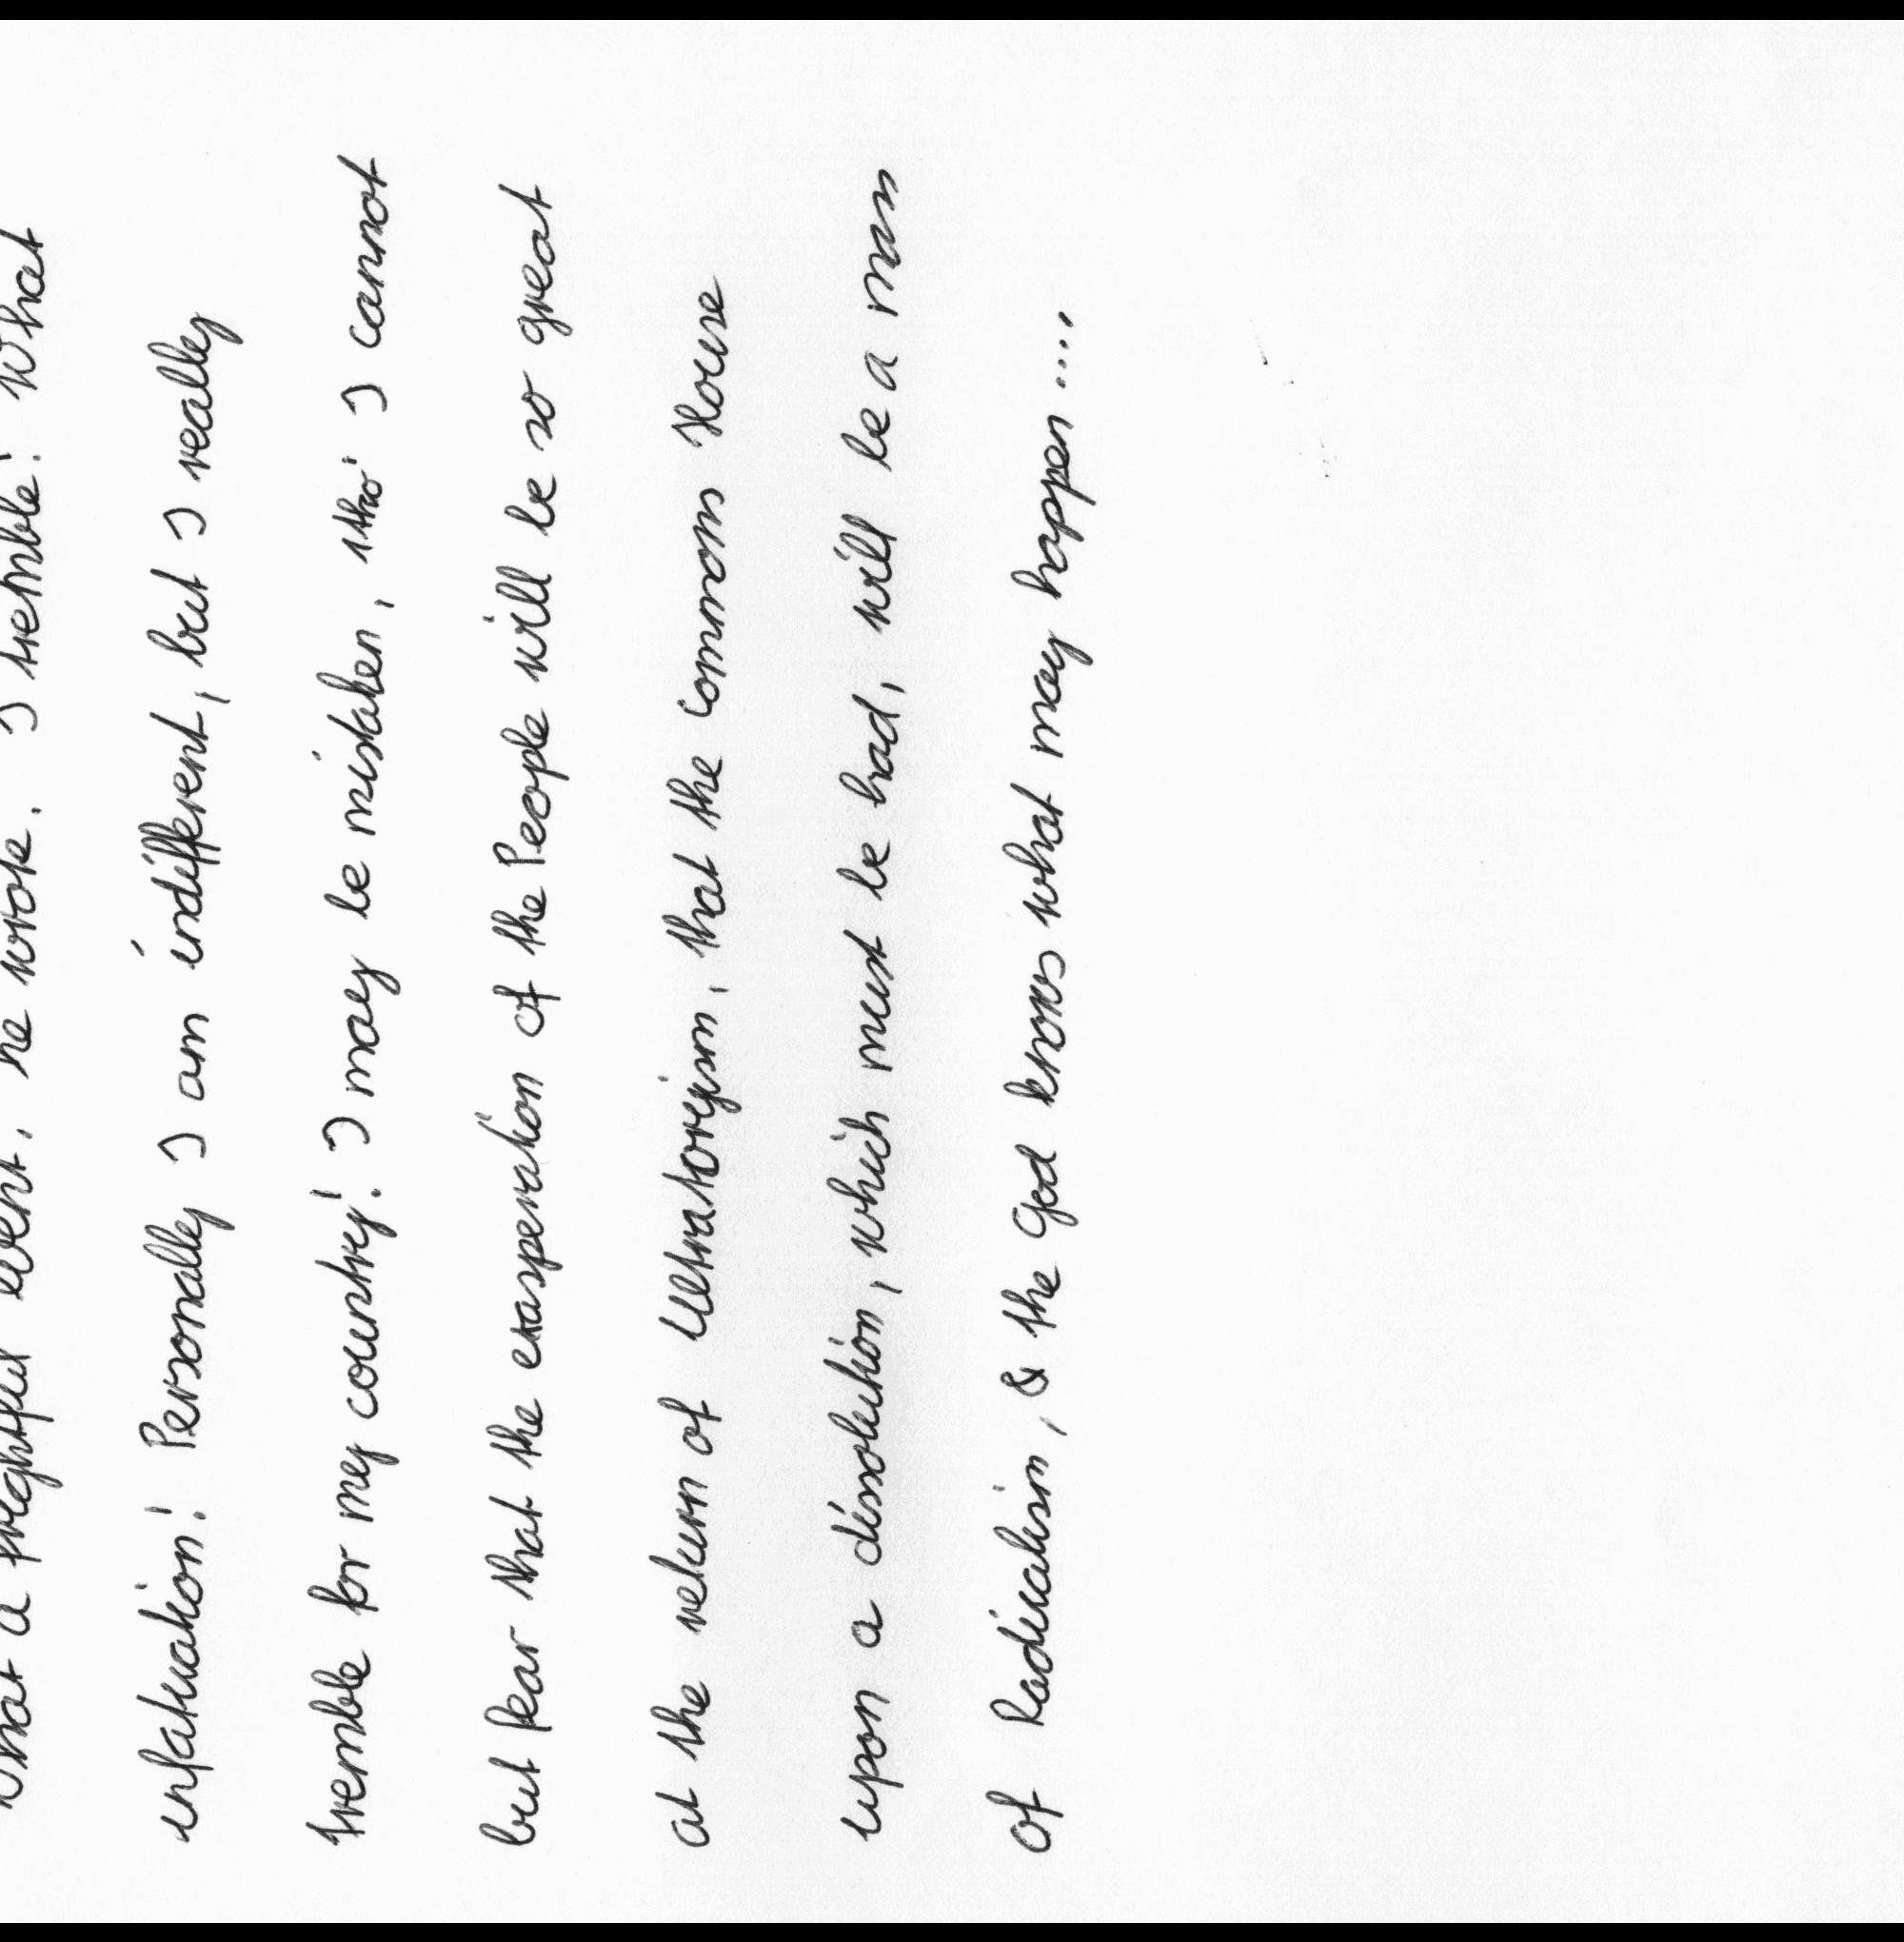 What a frightful event, he wrote. I tremble! What
infatuation! Personally I am indifferent, but I really
tremble for my country! I may be mistaken, tho' I cannot
but fear that the exasperation of the People will be so great
at the return of Ultratoryism, that the Commons House
upon a dissolution, which must be had, will be a man
of Radicalism, & the God knows what may happen....